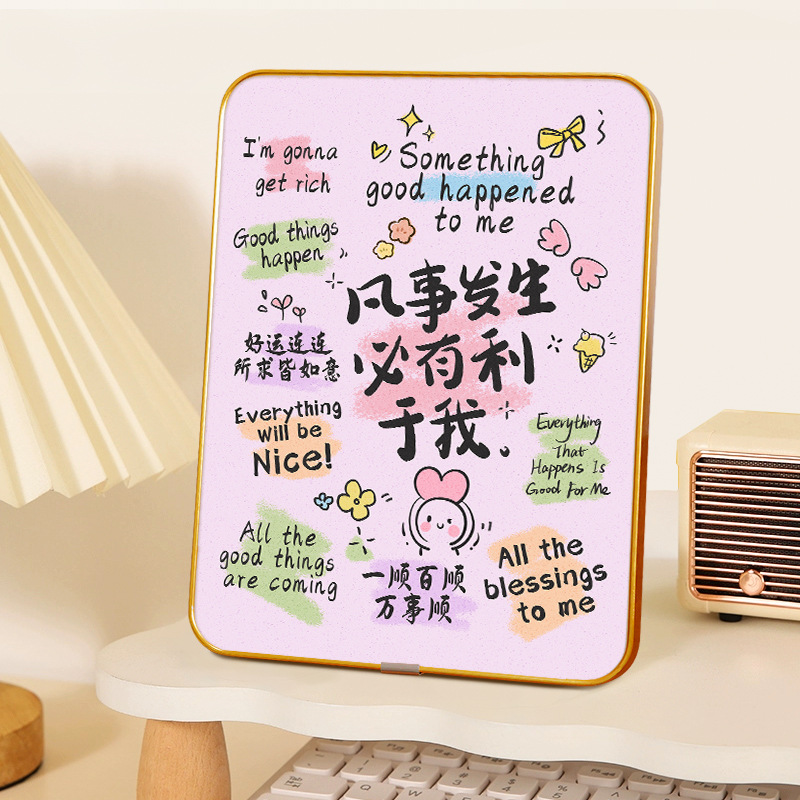 I'm gonna
get rich
Something
good happened
to me
Good things
happen
凡事发生
必有利
于我。
好运连连
所求皆如意
Everything
will be
Nice!
Everything
That
Happens Is
Good For Me
All the
good things
are coming
一顺百顺
万事顺
All the
blessings
to me